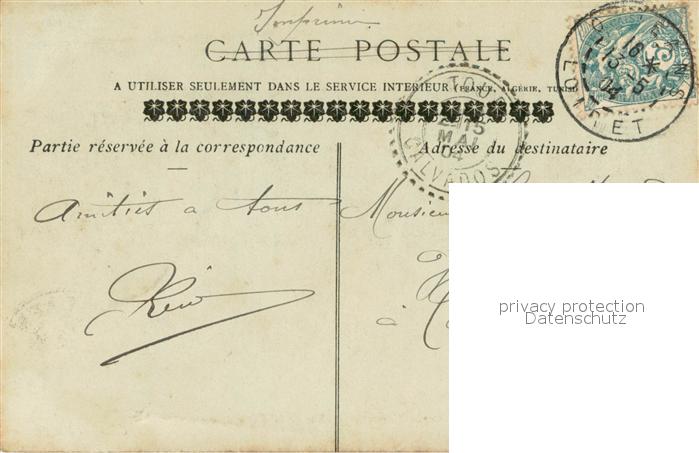 Imprimé
CARTE POSTALE
A UTILISER SEULEMENT DANS LE SERVICE INTERIEUR (FRANCE, ALGÉRIE, TUNISIE
Partie réservée à la correspondance
Adresse du destinataire
TOU
15
MAI
04
CALVADOS
ORLEANS
16 *
13 5
04
LOIRET
Amitiés à tous
Monsieur
à
privacy protection
Datenschutz